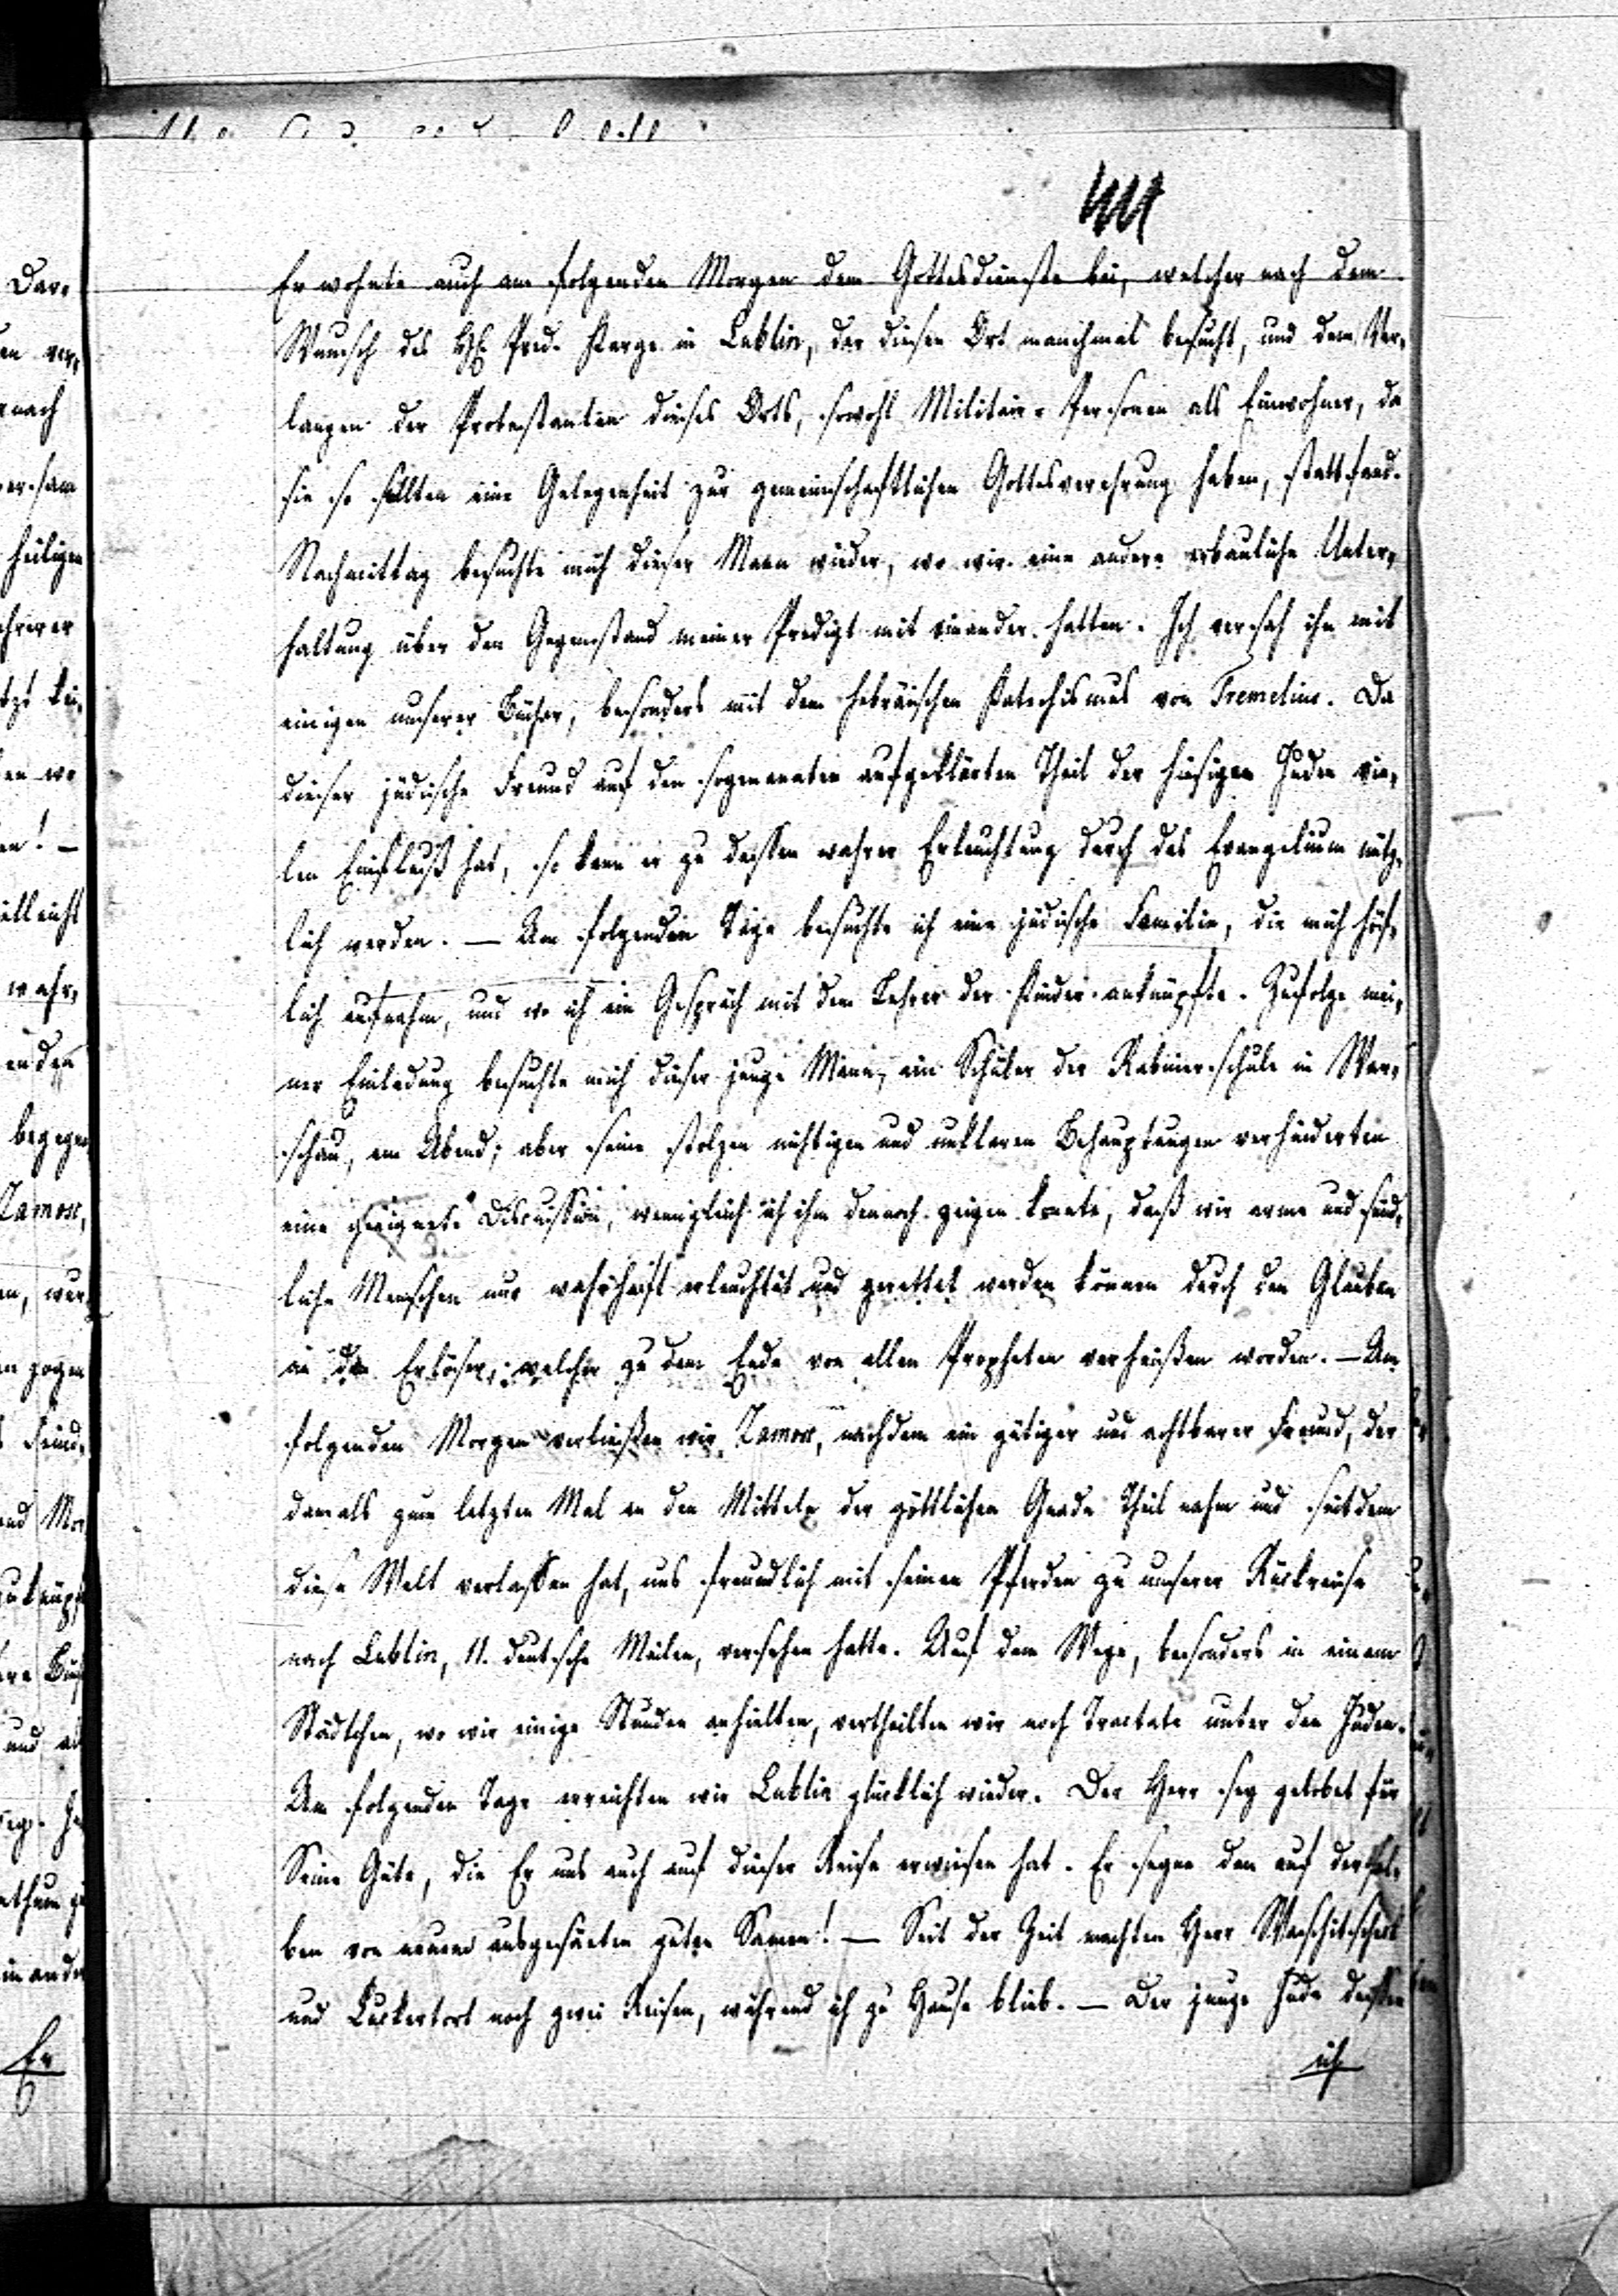 Er wohnte auch am folgenden Morgen dem Gottesdienste bei, welcher nach dem
Wunsch des H. Pred. in Lublin, der diesen Ort manchmal besucht, und dem Ver-
langen der Protestanten dieses Orts, sowohl Militair-Personen als Einwohner, da
sie so sellten eine Gelegenheit zur gemeinschaftlichen Gottesverehrung haben, stattfand.
Nachmittag besuchte mich dieser Mann wieder, wo wir eine andere erbauliche Unter-
haltung über den Gegenstand meiner Predigt mit einander hatten. Ich versah ihn mit
einigen unserer Bücher, besonders mit dem hebräischen Katechismus von Tremelius. Da
dieser jüdische Freund auf den sogenannten aufgeklärten Theil der hiesigen Juden vie-
len Einfluß hat, so kann er zu dessen wahrer Erleuchtung durch das Evangelium nütz-
lich werden. — Am folgenden Tage besuchte ich eine jüdische Familie, die mich höf-
lich aufnahm, und wo ich ein Gespräch mit dem Lehrer der Kinder anknüpfte. Zufolge mei-
ner Einladung besuchte mich dieser junge Mann, ein Schüler der Rabinerschule in War-
schau, am Abend; aber seine stolzen nichtigen und unklaren Behauptungen verhinderten
eine geeignete Discussion, wenngleich ich ihm dennoch zeigen konnte, daß wir arme und sünd-
liche Menschen nur wahrhaft erleuchtet und gerettet werden können durch den Glauben
an den Erlöser, welcher zu dem Ende von allen Propheten verheißen worden. — Am
folgenden Morgen verließen wir Zamosc, nachdem ein gütiger und achtbarer Freund, der
damals zum letzten Mal an den Mitteln der göttlichen Gnade Theil nahm und seitdem
diese Welt verlassen hat, uns freundlich mit seinen Pferden zu unserer Rückreise
nach Lublin, 11. deutsche Meilen, versehen hatte. Auf dem Wege, besonders in einem
Städtchen, wo wir einige Stunden anhielten, vertheilten wir noch Tractate unter den Juden.
Am folgenden Tage erreichten wir Lublin glücklich wieder. Der Herr sey gelobet für
Seine Güte, die Er uns auch auf dieser Reise erwiesen hat. Er segne den auf dersel-
ben von neuem ausgesäeten guten Samen! — Seit der Zeit machten Herr
und noch zwei Reisen, während ich zu Hause blieb. — Der junge Jude dessen
ich